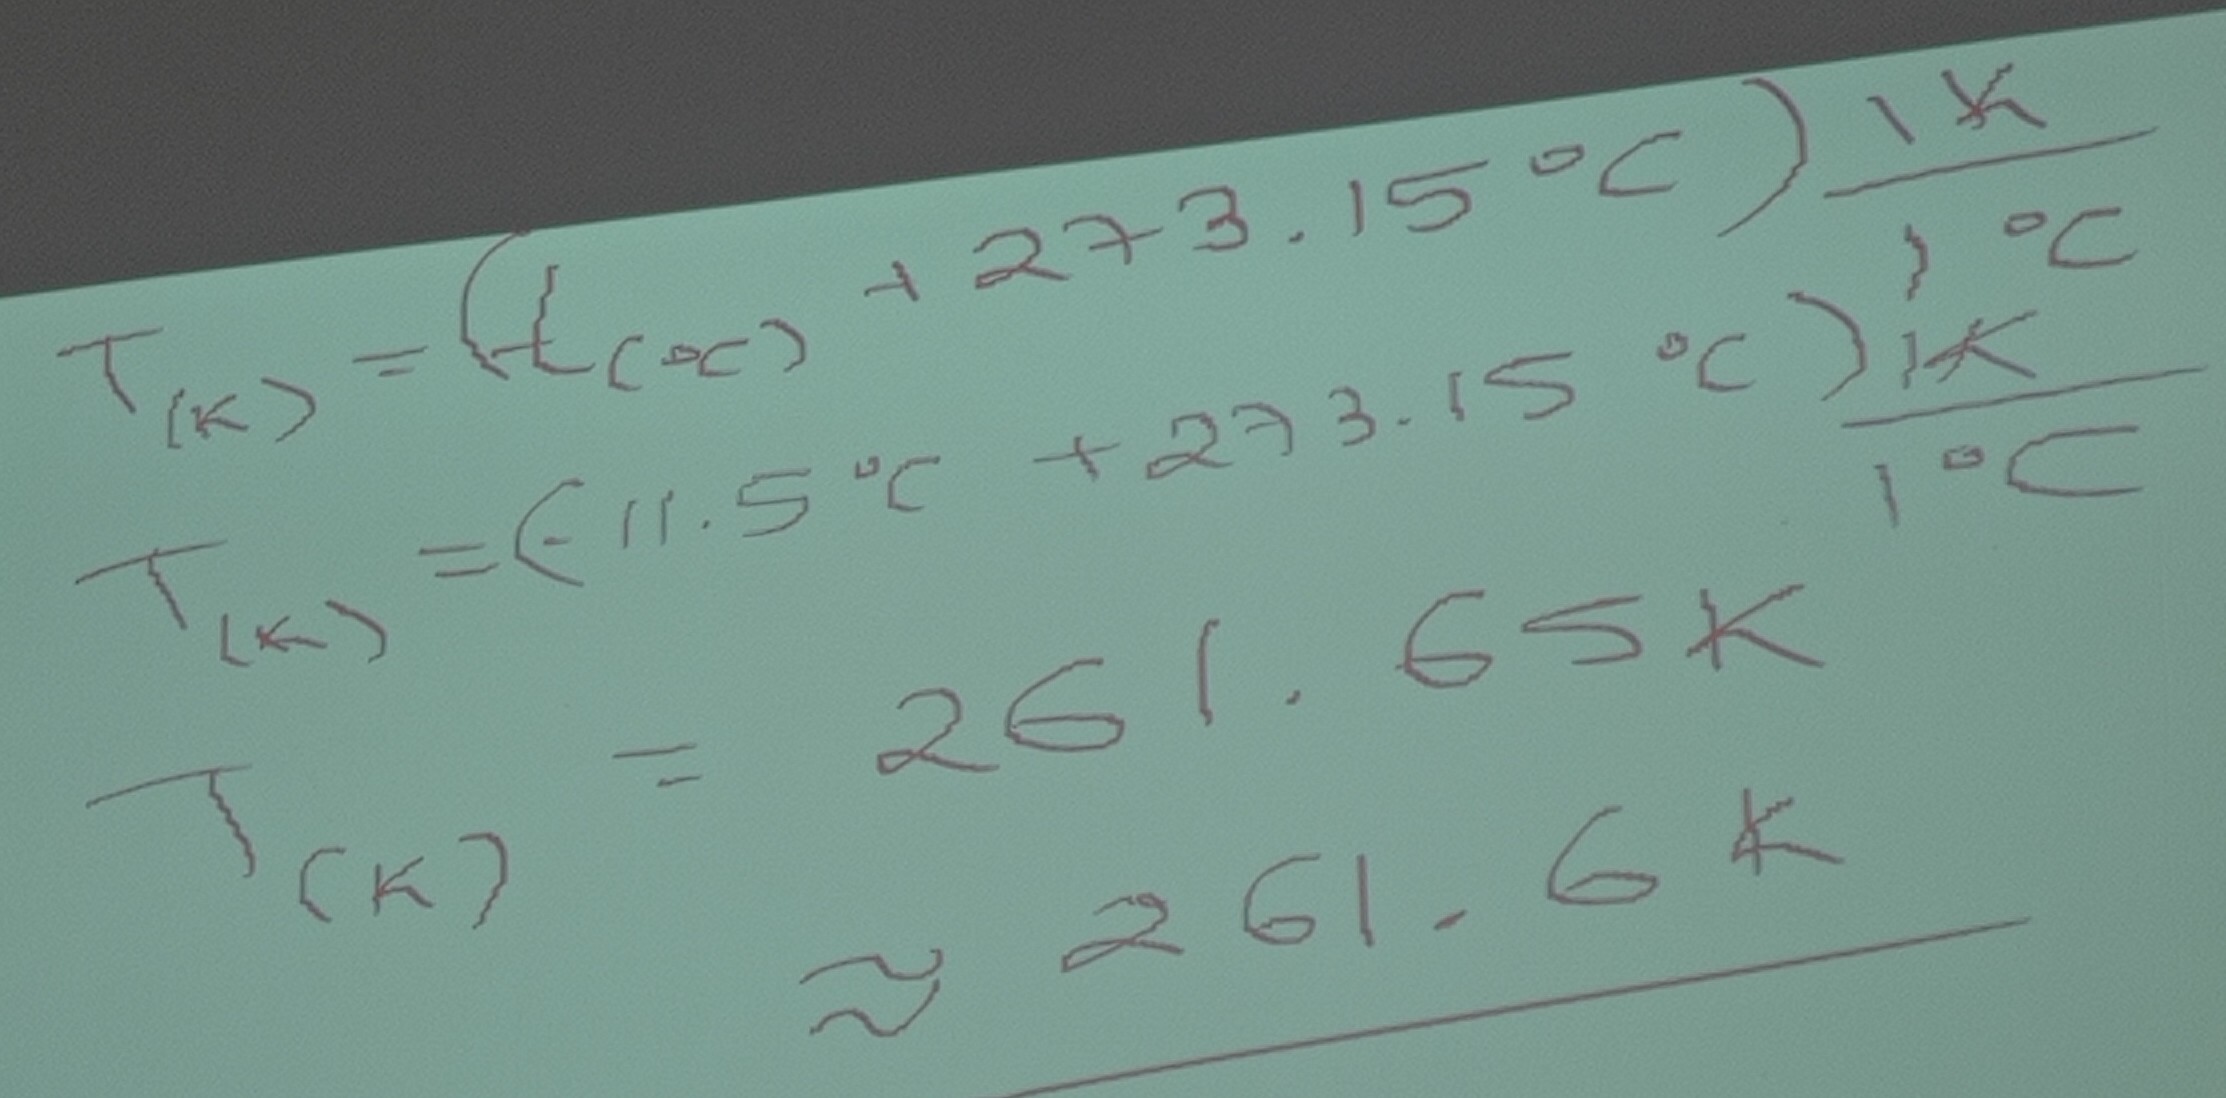 T(K) = (t(°C) + 273.15 °C) 1K / 1 °C
T(K) = (-11.5 °C + 273.15 °C) 1K / 1 °C
T(K) = 261.65K
≈ 261.6 K